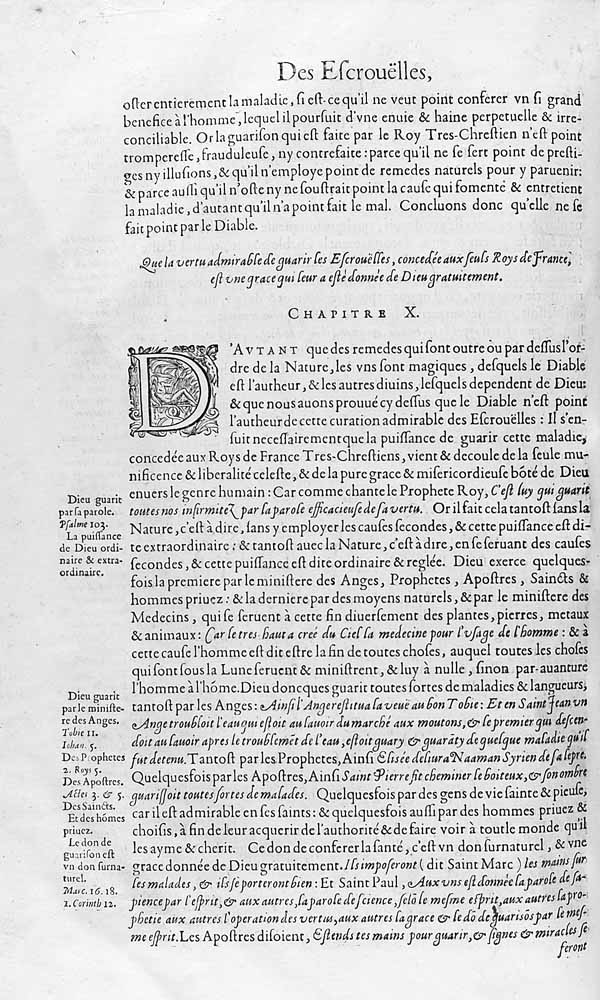 Des Eſcrouëlles,
oſter entierement la maladie, ſi eſt-ce qu'il ne veut point conferer vn ſi grand
benefice à l'homme, lequel il pourſuit d'vne enuie & haine perpetuelle & irre-
conciliable. Or la guariſon qui eſt faite par le Roy Tres-Chreſtien n'eſt point
trompereſſe, frauduleuſe, ny contrefaite: parce qu'il ne ſe ſert point de preſti-
ges ny illuſions, & qu'il n'employe point de remedes naturels pour y paruenir:
& parce auſſi qu'il n'oſte ny ne ſouſtrait point la cauſe qui fomente & entretient
la maladie, d'autant qu'il n'a point fait le mal. Concluons donc qu'elle ne ſe
fait point par le Diable.
Que la vertu admirable de guarir les Eſcrouëlles, concedée aux ſeuls Roys de France,
eſt vne grace qui leur a eſté donnée de Dieu gratuitement.
CHAPITRE X.
D'AVTANT que des remedes qui ſont outre ou par deſſus l'or-
dre de la Nature, les vns ſont magiques, deſquels le Diable
eſt l'autheur, & les autres diuins, leſquels dependent de Dieu:
& que nous auons prouué cy deſſus que le Diable n'eſt point
l'autheur de cette curation admirable des Eſcrouëlles: Il s'en-
ſuit neceſſairement que la puiſſance de guarir cette maladie,
concedée aux Roys de France Tres-Chreſtiens, vient & decoule de la ſeule mu-
nificence & liberalité celeſte, & de la pure grace & miſericordieuſe bôté de Dieu
enuers le genre humain: Car comme chante le Prophete Roy, C'eſt luy qui guarit
toutes nos infirmitez par ſa parole efficacieuſe de ſa vertu. Or il fait cela tantoſt ſans la
Nature, c'eſt à dire, ſans y employer les cauſes ſecondes, & cette puiſſance eſt di-
te extraordinaire: & tantoſt auec la Nature, c'eſt à dire, en ſe ſeruant des cauſes
ſecondes, & cette puiſſance eſt dite ordinaire & reglée. Dieu exerce quelques-
fois la premiere par le miniſtere des Anges, Prophetes, Apoſtres, Saincts &
hommes priuez: & la derniere par des moyens naturels, & par le miniſtere des
Medecins, qui ſe ſeruent à cette fin diuerſement des plantes, pierres, metaux
& animaux: Car le tres-haut a creé du Ciel ſa medecine pour l'vſage de l'homme: & à
cette cauſe l'homme eſt dit eſtre la fin de toutes choſes, auquel toutes les choſes
qui ſont ſous la Lune ſeruent & miniſtrent, & luy à nulle, ſinon par-auanture
l'homme à l'hôme. Dieu doncques guarit toutes ſortes de maladies & langueurs,
tantoſt par les Anges: Ainſi l'Ange reſtitua la veuë au bon Tobie: Et en Saint Jean vn
Ange troubloit l'eau qui eſtoit au lauoir du marché aux moutons, & le premier qui deſcen-
doit au lauoir apres le troublemēt de l'eau, eſtoit guary & guaráty de quelque maladie qu'il
fut detenu. Tantoſt par les Prophetes, Ainſi Eliſée deliura Naaman Syrien de ſa lepre.
Quelquesfois par les Apoſtres, Ainſi Saint Pierre fit cheminer le boiteux, & ſon ombre
guariſſoit toutes ſortes de malades. Quelquesfois par des gens de vie ſainte & pieuſe,
car il eſt admirable en ſes ſaints: & quelquesfois auſſi par des hommes priuez &
choiſis, à fin de leur acquerir de l'authorité & de faire voir à tout le monde qu'il
les ayme & cherit. Ce don de conferer la ſanté, c'eſt vn don ſurnaturel, & vne
grace donnée de Dieu gratuitement. Ils impoſeront (dit Saint Marc) les mains ſur
les malades, & ils ſe porteront bien: Et Saint Paul, Aux vns eſt donnée la parole de ſa-
pience par l'eſprit, & aux autres, la parole de ſcience, ſelō le meſme eſprit, aux autres la pro-
phetie aux autres l'operation des vertus, aux autres la grace & le dō de guariſōs par le meſ-
me eſprit. Les Apoſtres diſoient, Eſtends tes mains pour guarir, & ſignes & miracles ſe
feront
Dieu guarit
par ſa parole.
Pſalme 103.
La puiſſance
de Dieu ordi-
naire & extra-
ordinaire.
Dieu guarit
par le miniſte-
re des Anges.
Tobie 11.
Iohan. 5.
Des Prophetes
2. Roys 5.
Des Apoſtres.
Actes 3. & 5.
Des Saincts.
Et des hômes
priuez.
Le don de
guariſon eſt
vn don ſurna-
turel.
Marc. 16. 18.
1. Corinth 12.